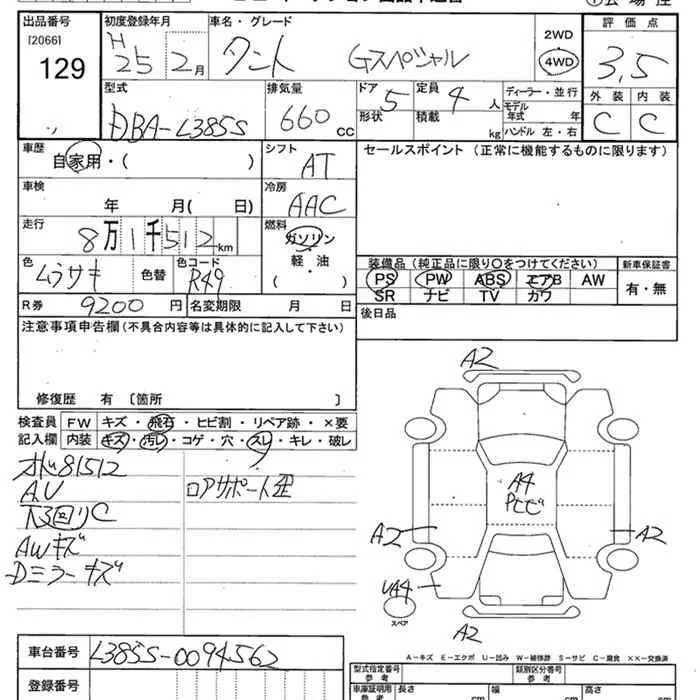 出品番号 初度登録年月 車名・グレード 評価点
[2066] 129
H25 2月 タント Gスペシャル 2WD 4WD 3,5
型式 排気量 ドア 定員 ディーラー・並行 外装 内装
DBA-L385S 660 CC 5 4 人 モデル年式 年 C C
形状 積載 kg ハンドル 左・右
車歴 シフト セールスポイント (正常に機能するものに限ります)
自家用・( ) AT
車検 冷房
年 月( 日) AAC
走行 燃料
8万1千512km ガソリン
軽・油
( )
色 色替 色コード 装備品 (純正品に限り〇をつけてください) 新車保証書
ムラサキ R49 PS PW ABS エアB AW 有・無
SR ナビ TV カワ
R券 9200円 名変期限 月 日 後日品
注意事項申告欄 (不具合内容等は具体的に記入して下さい)
修復歴 有 〔箇所 〕
検査員 FW キズ・飛石・ヒビ割・リペア跡・×要
記入欄 内装 キズ・汚レ・コゲ・穴・スレ・キレ・破レ
81512
ロアサポート歪
AU
下回りC
AWキズ
Dミラーキズ
A2
A4
A2 A2
UA4
スペア
A2
A-キズ E-エクボ U-凹み W-補修跡 S-サビ C-腐食 ××-交換済
車台番号 L385S-0094562
型式指定番号 類別区分番号
登録番号 車庫証明用 長さ cm 幅 cm 高さ cm